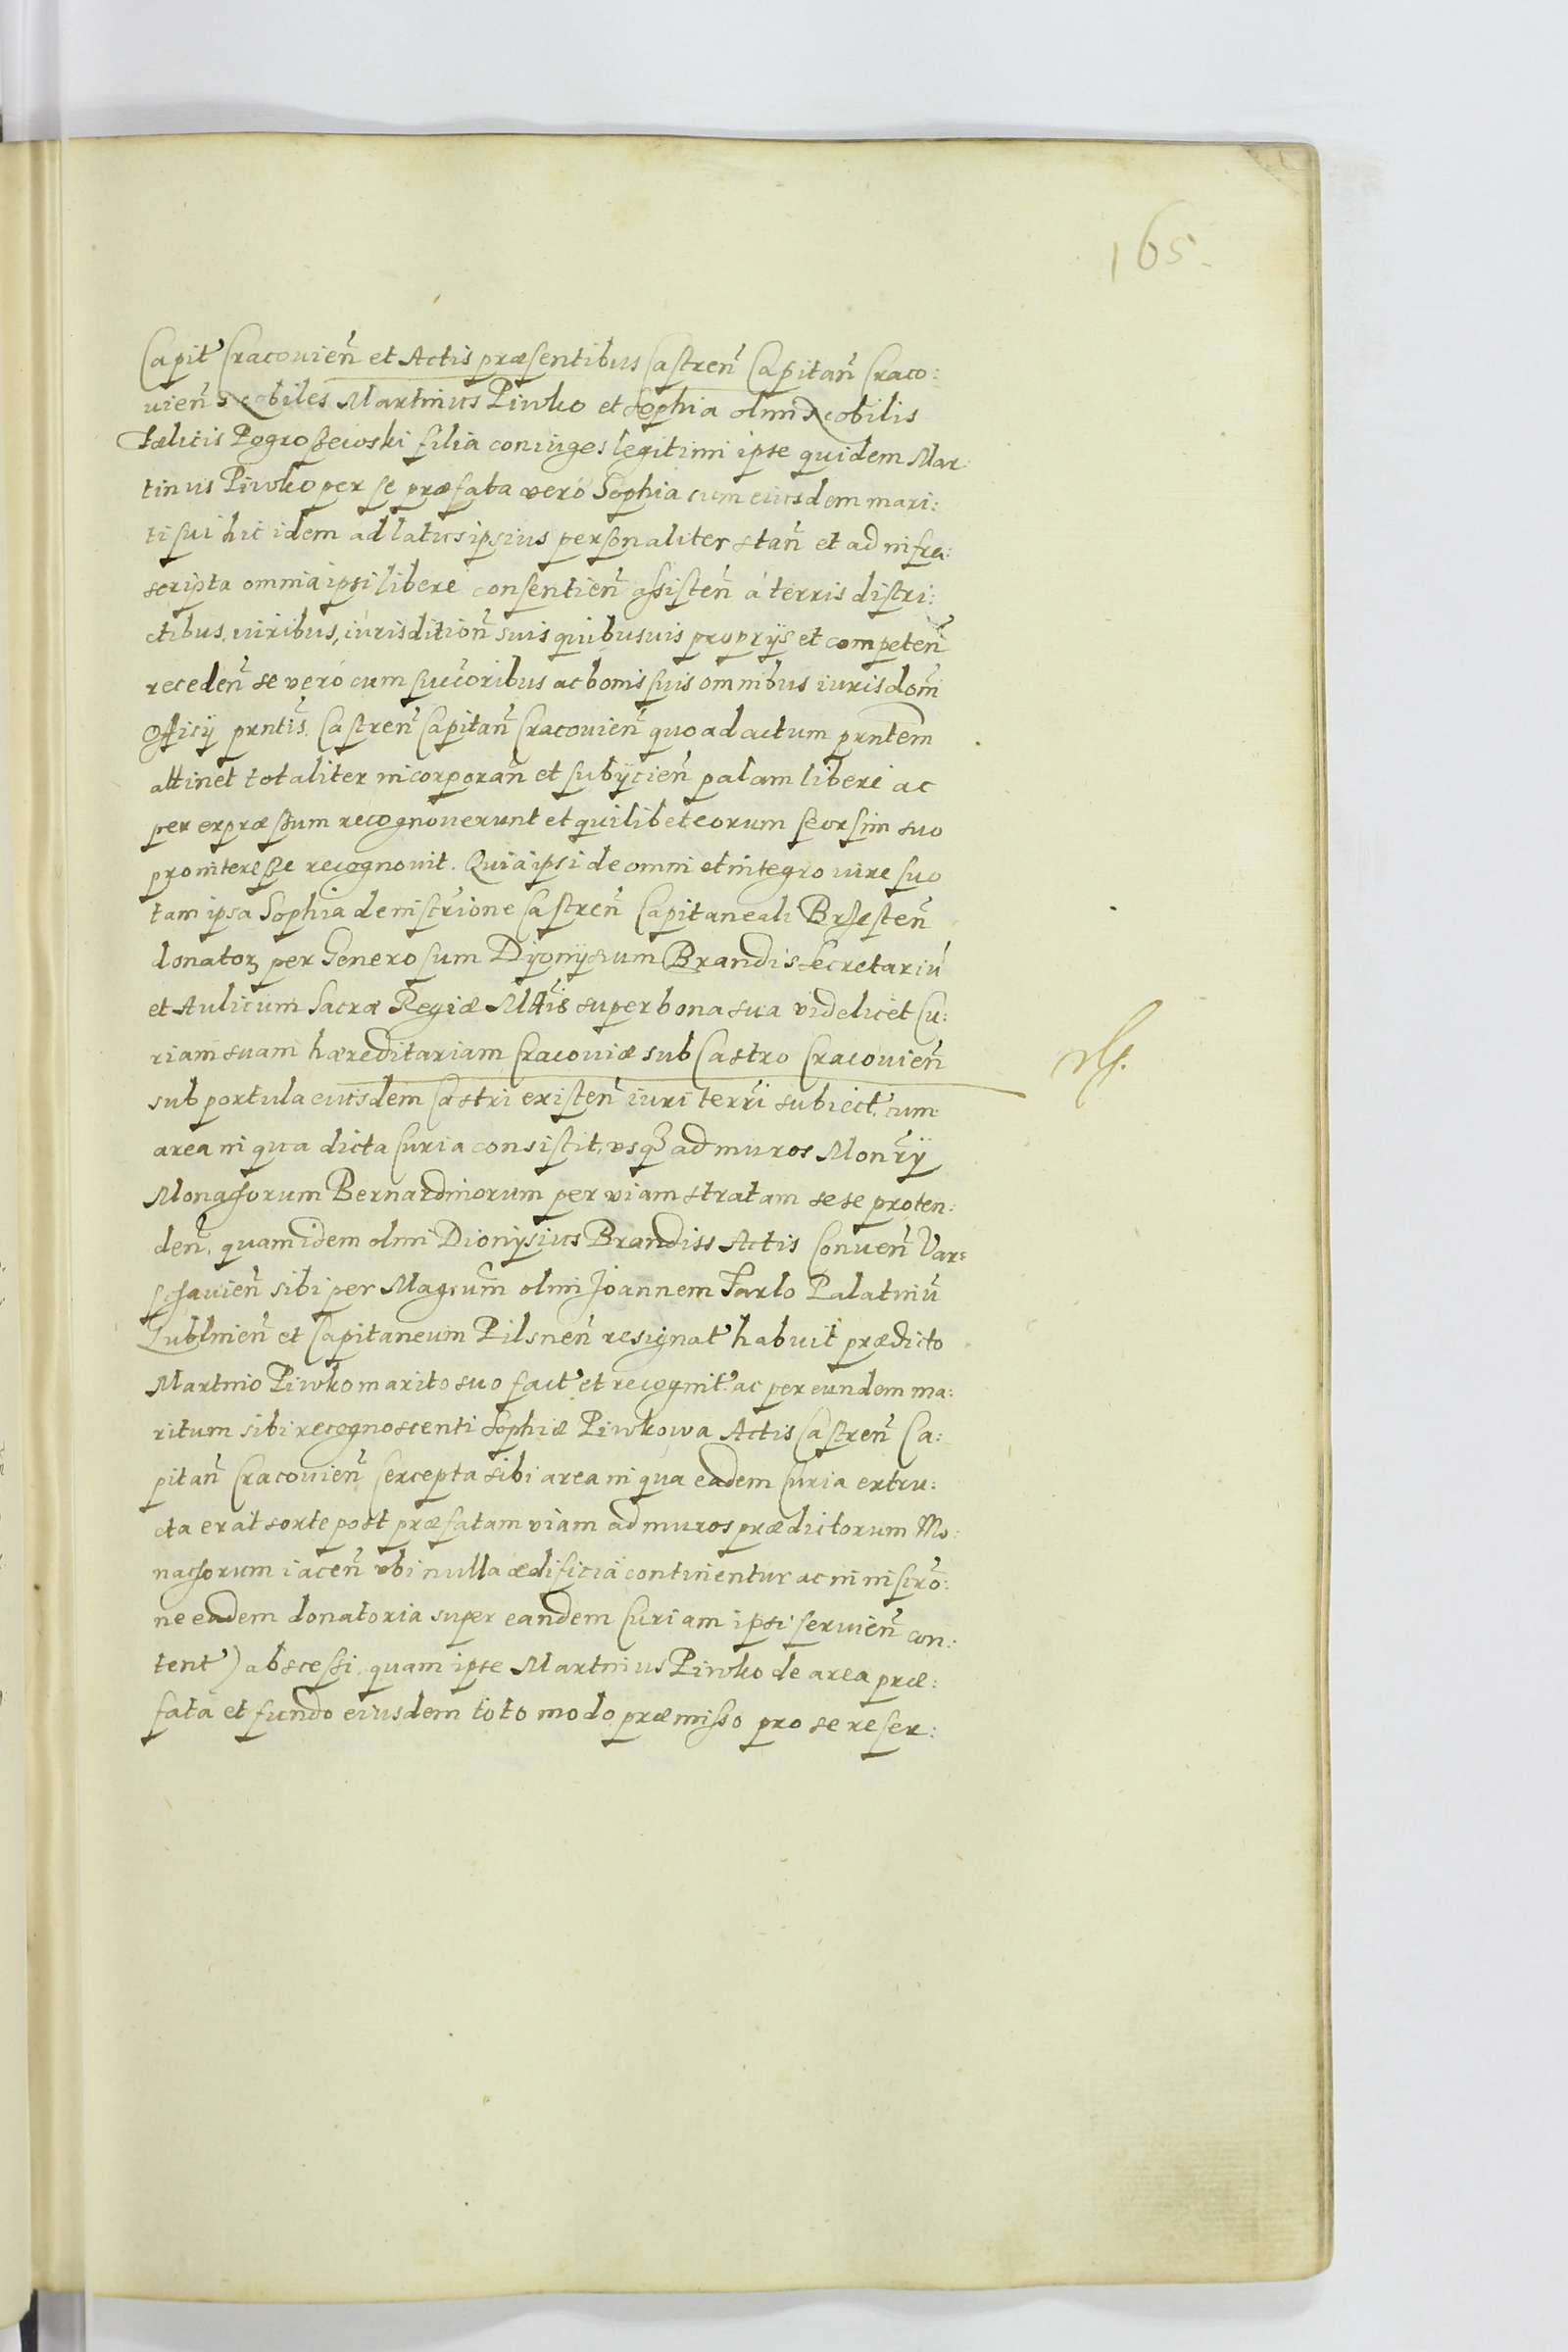 165.
Capit' Cracovien̄ et Actis præsentibus Castren̄ Capitan̄ Craco:
vien̄ Nobiles Martinus Piwko et Sophia olim Nobilis
Fælicis Pogroszewski filia coniuges legitimi ipse quidem Mar
tinus Piwko per se præfata verò Sophia cum eiusdem mari:
ti sui hic idem ad latus ipsius personaliter stan̄ et ad infra:
scripta omnia ipsi libere consentien̄ assisten̄ á terris distri:
ctibus, iuribus, iurisdition̄ suis quibusuis proprijs et competen̄
receden̄ se verò cum succ̄oribus ac bonis suis omnibus iurisdom̄
Officij prntis̄ Castren̄ Capitan̄ Cracovien̄ quo ad actum prntem̄
attinet totaliter incorporan̄ et subijcien̄ palam libere ac
per expræssum recognoverunt et quilibet eorum seorsim suo
pro interesse recognovit. Quia ipsi de omni et integro iure suo
tam ipsa Sophia de inscr̄ione Castren̄ Capitaneali Brzesten̄
donatoꝝ per Generosum Dyonysium Brandis Secretariū
et Aulicum Sacræ Regiæ Mttis̄ super bona sua videlicet Cu:
riam suam hæreditariam Cracoviæ sub Castro Cracovien̄
sub portula eiusdem Castri existen̄ iuri terri̅ subiect' cum
area in qua dicta Curia consistit, vsqꝫ ad muros Monr̄ij
Monachorum Bernardinorum per viam stratam sese proten:
den̄, quam idem olim Dionysius Brandiss Actis Conven̄ Var:
schavien̄ sibi per Magcum̄ olim Joannem Tarlo Palatinū
Lublinen̄ et Capitaneum Pilsnen̄ resignat' habuit prædicto
Martino Piwko marito suo fact' et recognit' ac per eundem ma:
ritum sibi recognoscenti Sophiæ Piwkowa Actis Castren̄ Ca:
pitan̄ Cracovien̄ (excepta sibi area in qua eadem Curia extru:
cta erat sorte post præfatam viam ad muros prædictorum Mo:
nachorum iacen̄ vbi nulla ædificia continentur ac in inscr̄o:
ne eadem donatoria super eandem Curiam ipsi servien̄ con:
tent') abscessi. quam ipse Martinius Piwko de area præ:
fata et fundo eiusdem toto modo præmisso pro se reser: